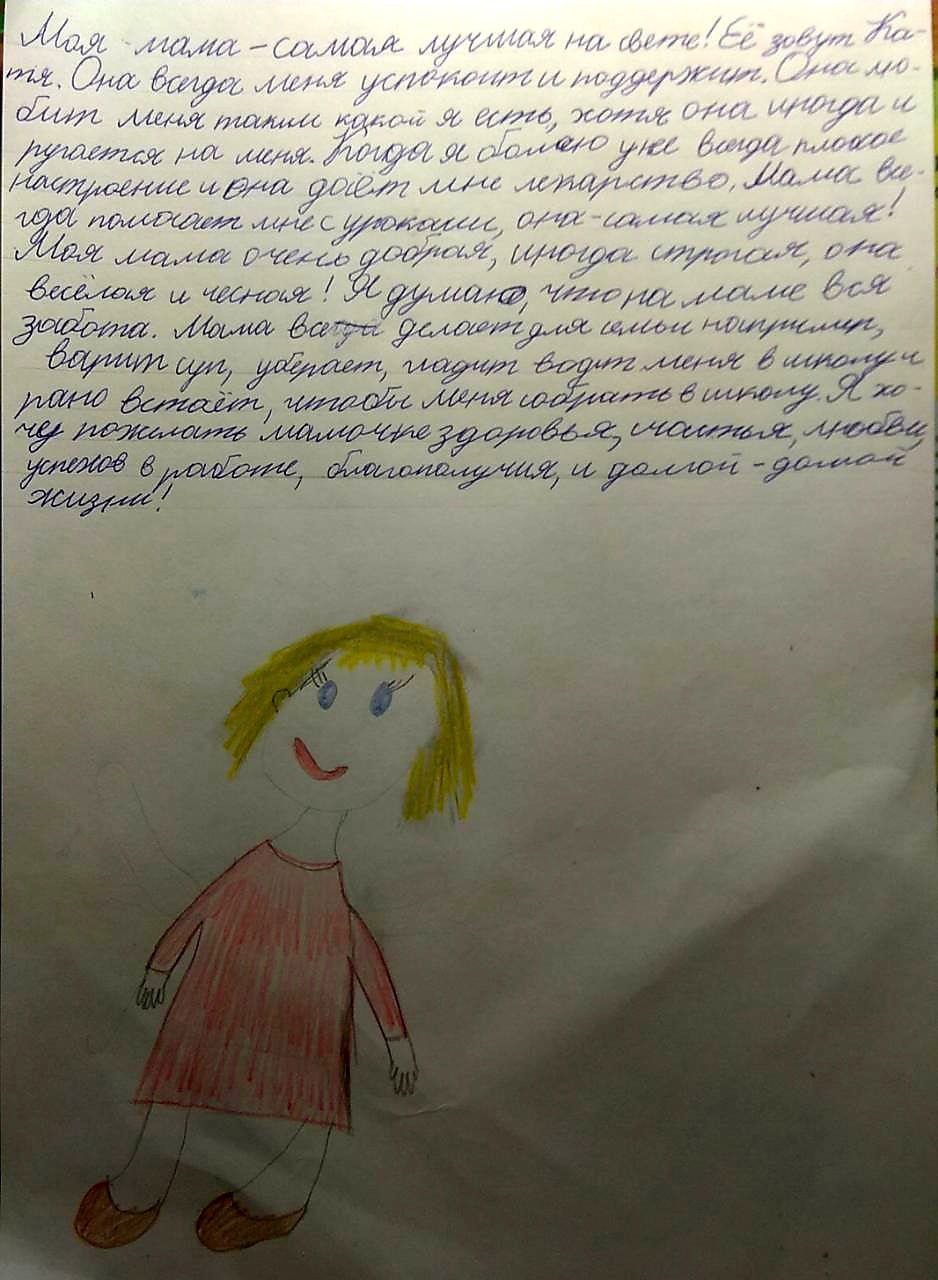 Моя мама - самая лучшая на свете! Её зовут Ка-
тя. Она всегда меня успокоит и поддержит. Она лю-
бит меня таким какой я есть, хотя она иногда и
ругается на меня. Когда я болею у не всегда плохое
настроение и она даёт мне лекарство. Мама все-
гда помогает мне с уроками, она - самая лучшая!
Моя мама очень добрая, иногда строгая, она
весёлая и чесная! Я думаю, что на маме вся
забота. Мама все делает для семьи например,
варит суп, уберает, гладит водит меня в школу и
рано встаёт, чтобы меня собрать в школу. Я хо-
чу пожелать мамочке здоровья, счастья, любви,
успехов в работе, благополучия, и долгой - долгой
жизни!